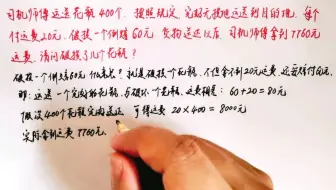 司机师傅运送花瓶400个，按照规定，完好无损地运送到目的地，每个
付运费20元，破损一个倒赔60元，货物运送以后，司机师傅拿到7760元
运费，请问破损了几个花瓶？
破损一个倒赔60元 什么意思？就是破损一个花瓶，不但拿不到20元运费，还要赔付60元，
即：运送一个完好的花瓶，与破坏一个花瓶，运费相差：60+20=80元
假设400个花瓶完好送达，可得运费 20×400=8000元
实际拿到运费 7760元，